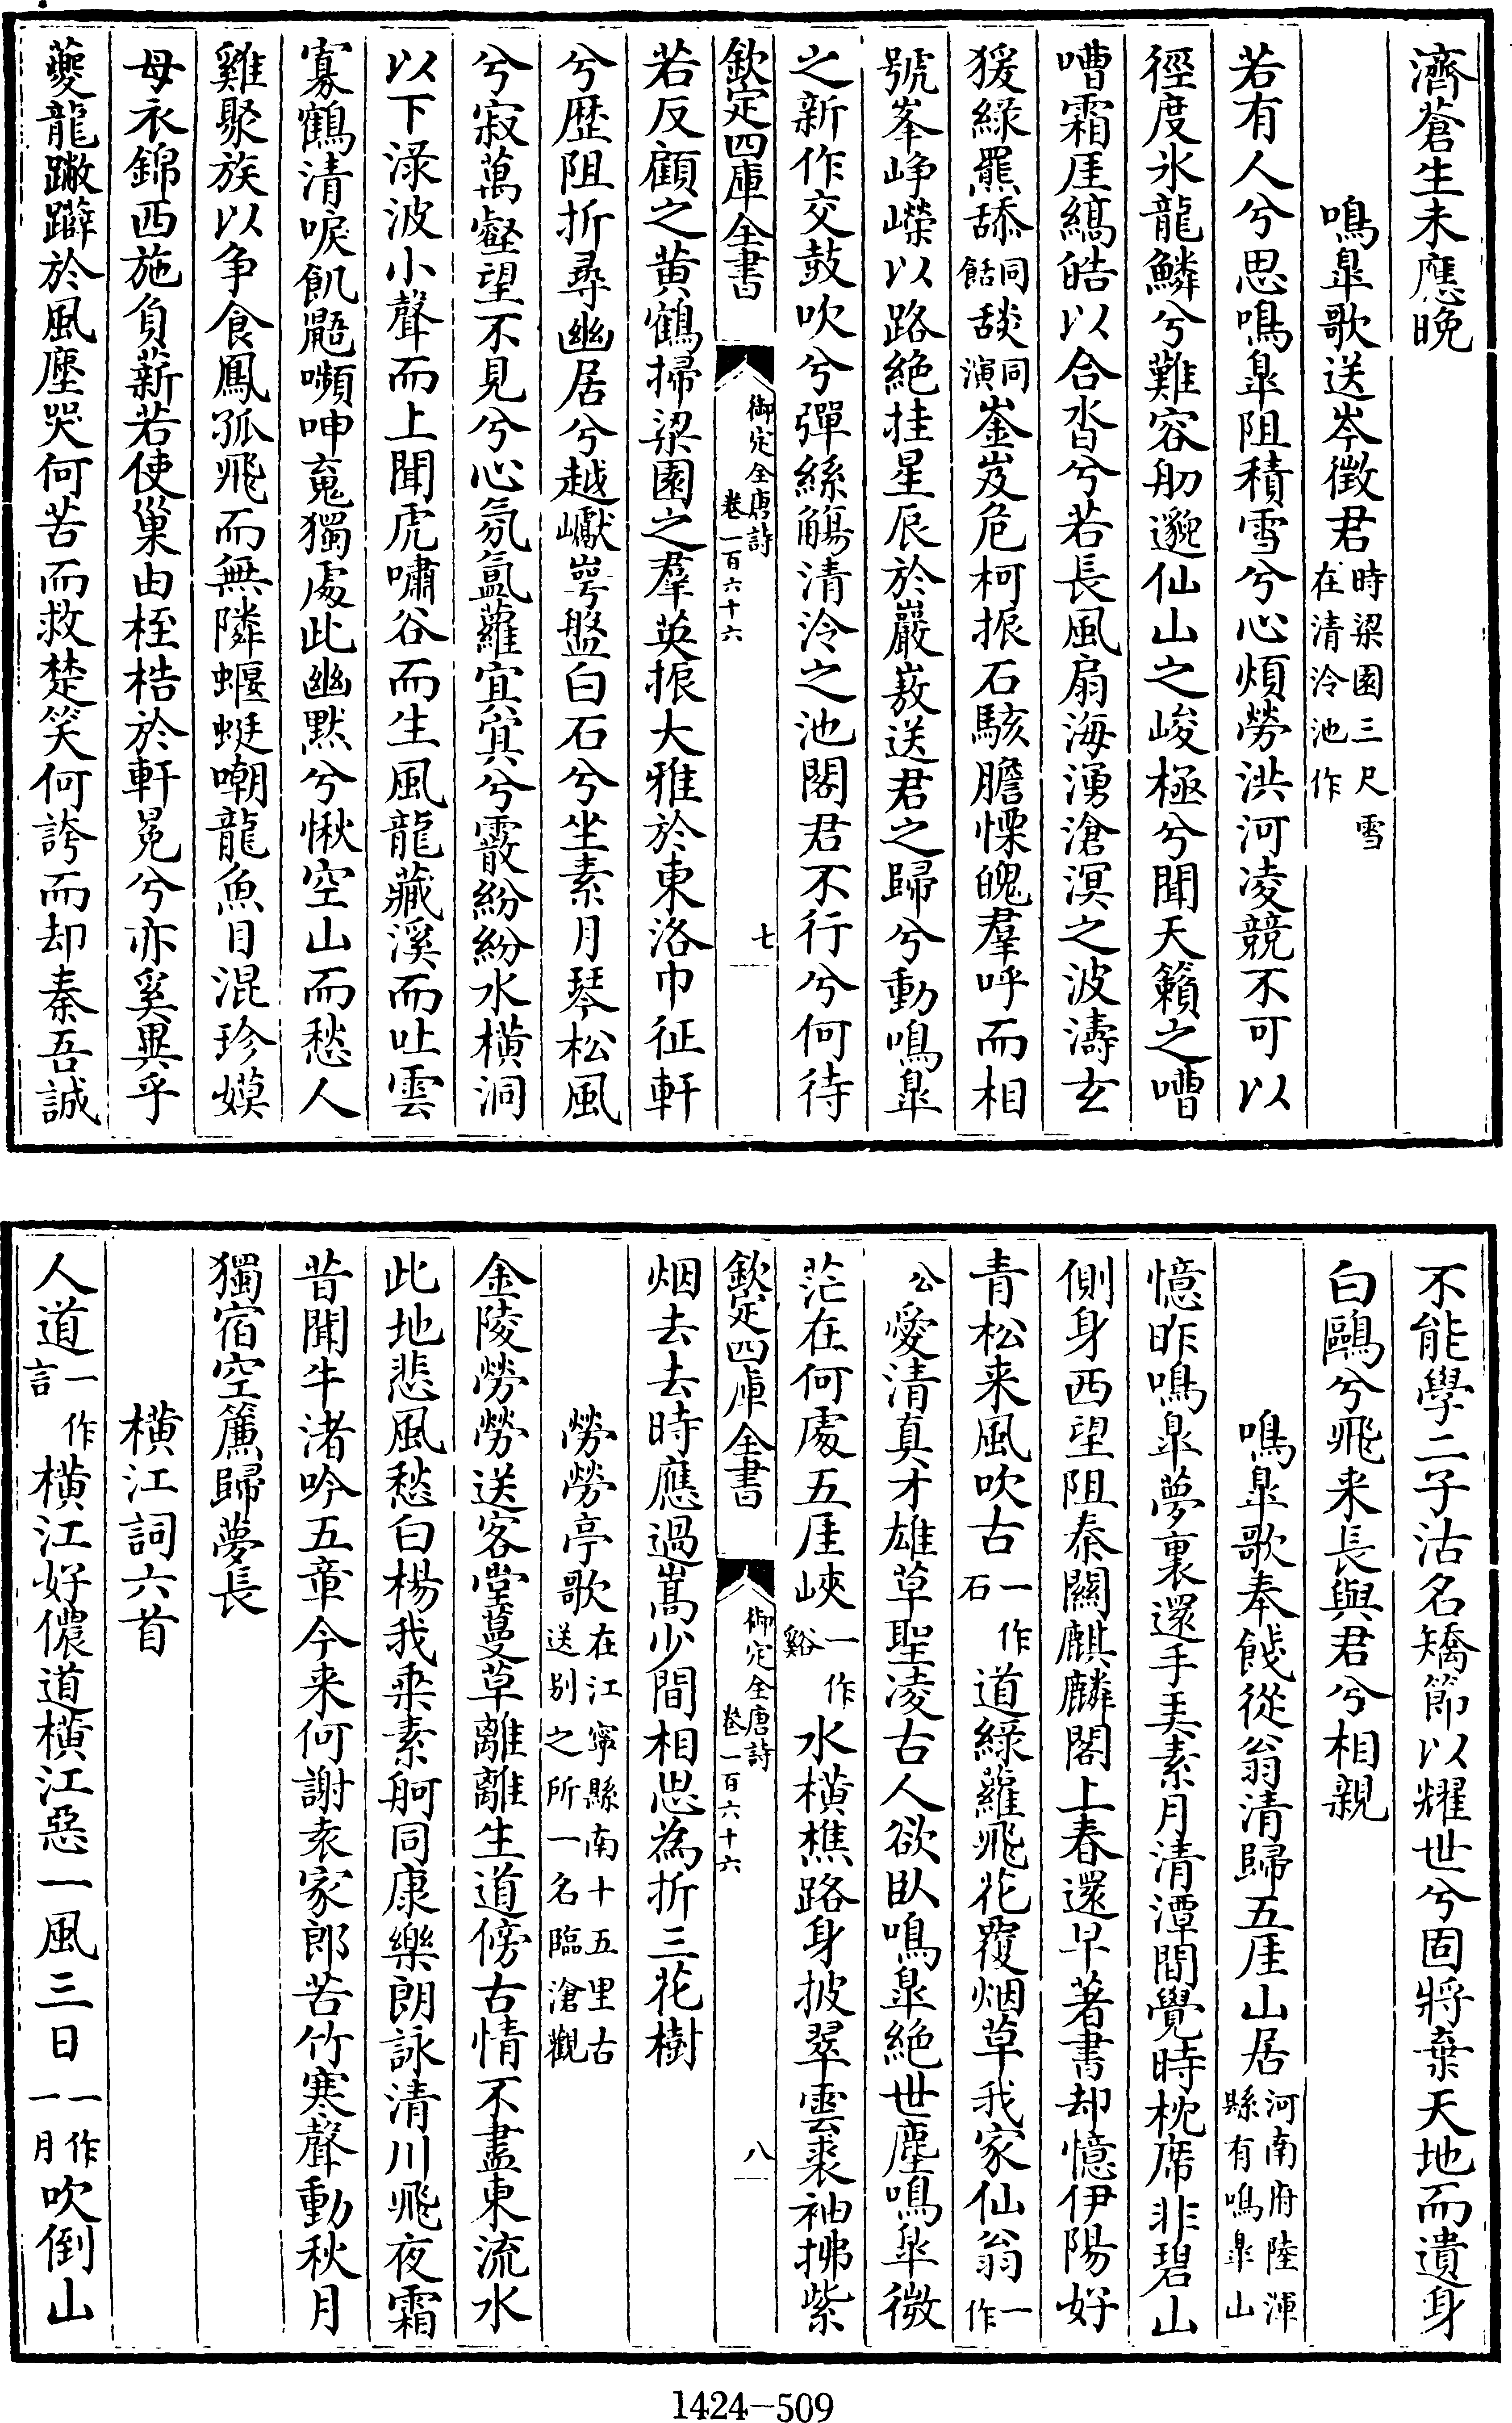 濟蒼生未應晚
鳴臯歌送岑徵君時梁園三尺雪在清泠池作
若有人兮思鳴臯阻積雪兮心煩勞洪河凌競不可以
徑度氷龍鱗兮難容舠邈仙山之峻極兮聞天籟之嘈
嘈霜厓縞皓以合沓兮若長風扇海湧滄溟之波濤玄
猨綠羆舔同餂舕同演崟岌危柯振石駭膽慄魄羣呼而相
號峯崢嶸以路絶挂星辰於巖嶅送君之歸兮動鳴臯
之新作交鼓吹兮彈絲觴清泠之池閣君不行兮何待
欽定四庫全書
御定全唐詩
卷一百六十六
七
若反顧之黄鶴掃梁園之羣英振大雅於東洛巾征軒
兮歴阻折尋幽居兮越巘崿盤白石兮坐素月琴松風
兮寂萬壑望不見兮心氛氳蘿㝠㝠兮霰紛紛水横洞
以下渌波小聲而上聞虎嘯谷而生風龍藏溪而吐雲
寡鶴清唳飢鼯嚬呻䰟獨處此幽黙兮愀空山而愁人
雞聚族以争食鳳孤飛而無隣蝘蜓嘲龍魚目混珍嫫
母衣錦西施負薪若使巢由桎梏於軒冕兮亦奚異乎
夔龍蹩躠於風塵哭何苦而救楚笑何誇而却秦吾誠
不能學二子沽名矯節以耀世兮固將棄天地而遺身
白鷗兮飛来長與君兮相親
鳴臯歌奉餞從翁清歸五厓山居河南府陸渾縣有鳴臯山
憶昨鳴臯夢裏還手弄素月清潭間覺時枕席非碧山
側身西望阻秦關麒麟閣上春還早著書却憶伊陽好
青松来風吹古一作石道綠蘿飛花覆烟草我家仙翁一作
公愛清真才雄草聖凌古人欲臥鳴臯絶世塵鳴臯微
茫在何處五厓峽一作谿水横樵路身披翠雲裘袖拂紫
欽定四庫全書
御定全唐詩
卷一百六十六
八
烟去去時應過嵩少間相思為折三花樹
勞勞亭歌在江寧縣南十五里古送别之所一名臨滄觀
金陵勞勞送客堂蔓草離離生道傍古情不盡東流水
此地悲風愁白楊我乗素舸同康樂朗詠清川飛夜霜
昔聞牛渚吟五章今来何謝袁家郎苦竹寒聲動秋月
獨宿空簾歸夢長
横江詞六首
人道一作言横江好儂道横江惡一風三日一作一月吹倒山
1424-509